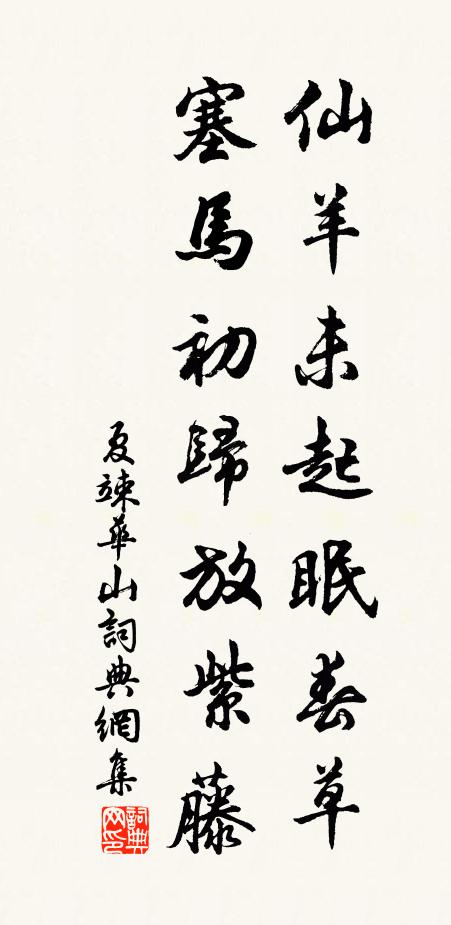 仙羊未起眠春草
塞馬初歸放紫藤
夏竦華山詞典網集
詞典網印